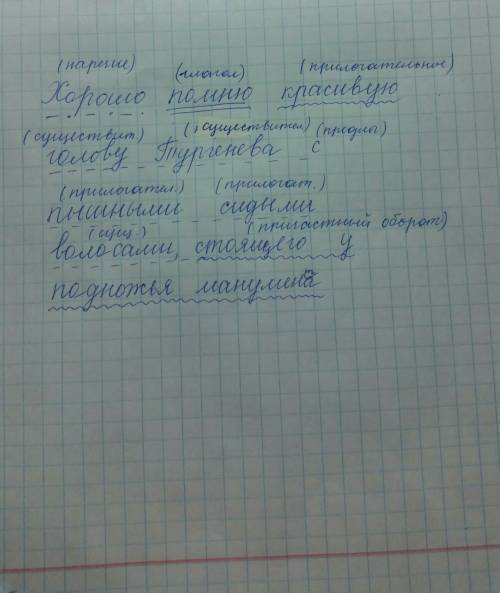 (наречие) (глагол) (прилогательное)
Хорошо помню красивую
(существит) (существител) (предлог)
голову Тургенева с
(прилогател.) (прилогат.)
пышными сидыми
(сущ.) (причастный оборот)
волосами, стоящего у
подножья манумена